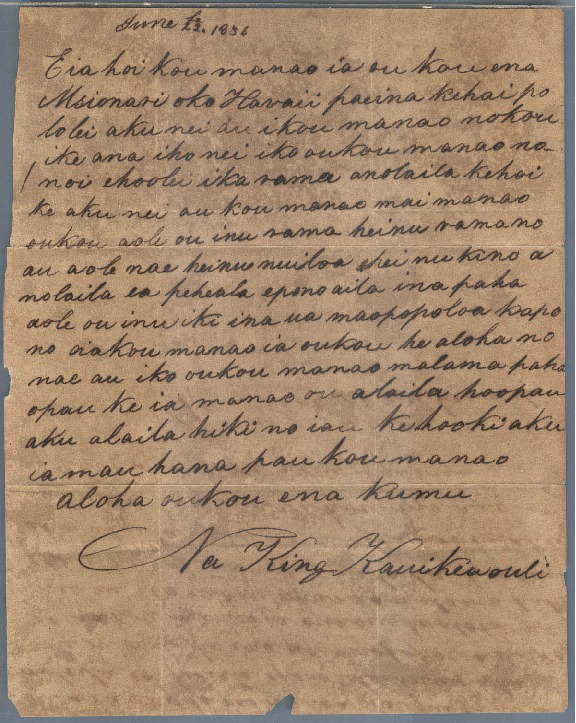 June 22. 1836
Eia hoi kou manao ia ou kou ena
Msionari oko Havaii paeina kehai po
lolei aku nei au ikou manao nokou
ike ana iho nei iko oukou manao na
noi ehoolei ika rama anolaila kehai
ke aku nei au kou manao mai manao
oukou aole ou inu rama heinu ramano
au aole nae heinu nuiloa hei nu kino a
nolaila ea peheala epono aila ina paha
aole ou inu iki ina ua maopopoloa kapo
no aiakou manao ia oukou he aloha no
nae au iko oukou manao malama paha
opau ke ia manao ou alaila hoopau
aku alaila hiki no iau ke hooki aku
ia mau hana pau kou manao
aloha oukou ena kumu
Na King Kauikeaouli